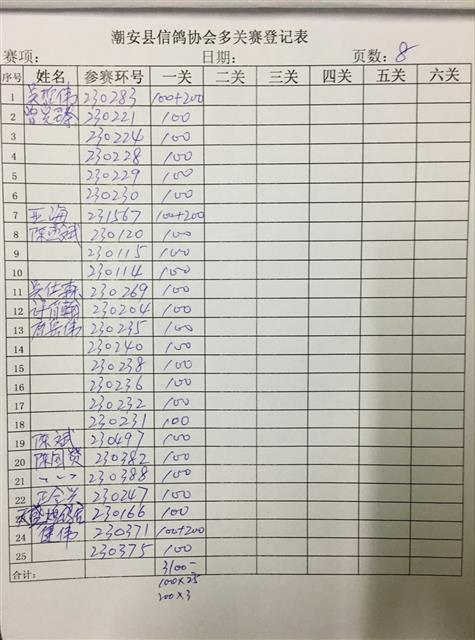 潮安县信鸽协会多关赛登记表
赛项: 日期: 页数: 8
序号 姓名 参赛环号 一关 二关 三关 四关 五关 六关
1 吴 伟 230283 100+200
2 曾 230221 100
3 230224 100
4 230228 100
5 230229 100
6 230230 100
7 王海 231567 100+200
8 陈 斌 230120 100
9 230115 100
10 230114 100
11 吴仕森 230269 100
12 许 230204 100
13 岳伟 230235 100
14 230240 100
15 230238 100
16 230236 100
17 230232 100
18 230231 100
19 陈斌 230497 100
20 陈国贤 230382 100
21 230388 100
22 230247 100
230166 100
24 健伟 230371 100+200
25 230375 100
合计: 3100-
100×25
200×3